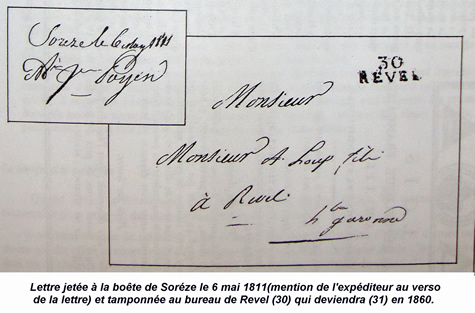 Sorèze le 6 may 1811
30
REVEL
Monsieur
Monsieur A. Loup fils
à Revel
hte garonne
Lettre jetée à la boête de Soréze le 6 mai 1811(mention de l'expéditeur au verso
de la lettre) et tamponnée au bureau de Revel (30) qui deviendra (31) en 1860.